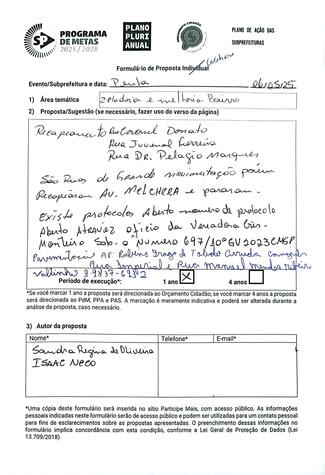 PROGRAMA
DE METAS
2025 / 2028
PLANO
PLURI
ANUAL
PLANO DE AÇÃO DAS
SUBPREFEITURAS
Formulário de Proposta Individual
Evento/Subprefeitura e data: Penha 06/05/25
1) Área temática zeladoria e melhoria Bairro
2) Proposta/Sugestão (se necessário, fazer uso do verso da página)
Recapeamento Rua Coronel Donato
Rua Juvenal Ferreira
Rua DR. Pelagio Marques
São Ruas de Grande movimentação porém
Recapearam AV. MELCHERA e pararam.
Existe protocolos Aberto numero de protocolo
Aberto Atravez oficio da Vereadora Cris
Monteiro Sob. o Numero 697/10ºGV2023CMSP
Pavimentação AV. Rubens Fraga de Toledo Arruda
Rua Imperial e Rua Manuel Mendes
Período de execução*: 1 ano X 4 anos
*Se você marcar 1 ano a proposta será direcionada ao Orçamento Cidadão; se você marcar 4 anos a proposta
será direcionada ao PdM, PPA e PAS. A marcação é meramente indicativa e poderá ser alterada durante a
análise da proposta, caso necessário.
3) Autor da proposta
Nome* Telefone* E-mail*
Sandra Regina de Oliveira
ISAAC Neco
*Uma cópia deste formulário será inserida no sítio Participe Mais, com acesso público. As informações
pessoais inseridas neste formulário serão de acesso público e podem ser utilizadas para um contato pessoal
para fins de esclarecimentos sobre as propostas apresentadas. O preenchimento dessas informações no
formulário implica concordância com esta condição, conforme a Lei Geral de Proteção de Dados (Lei
13.709/2018).